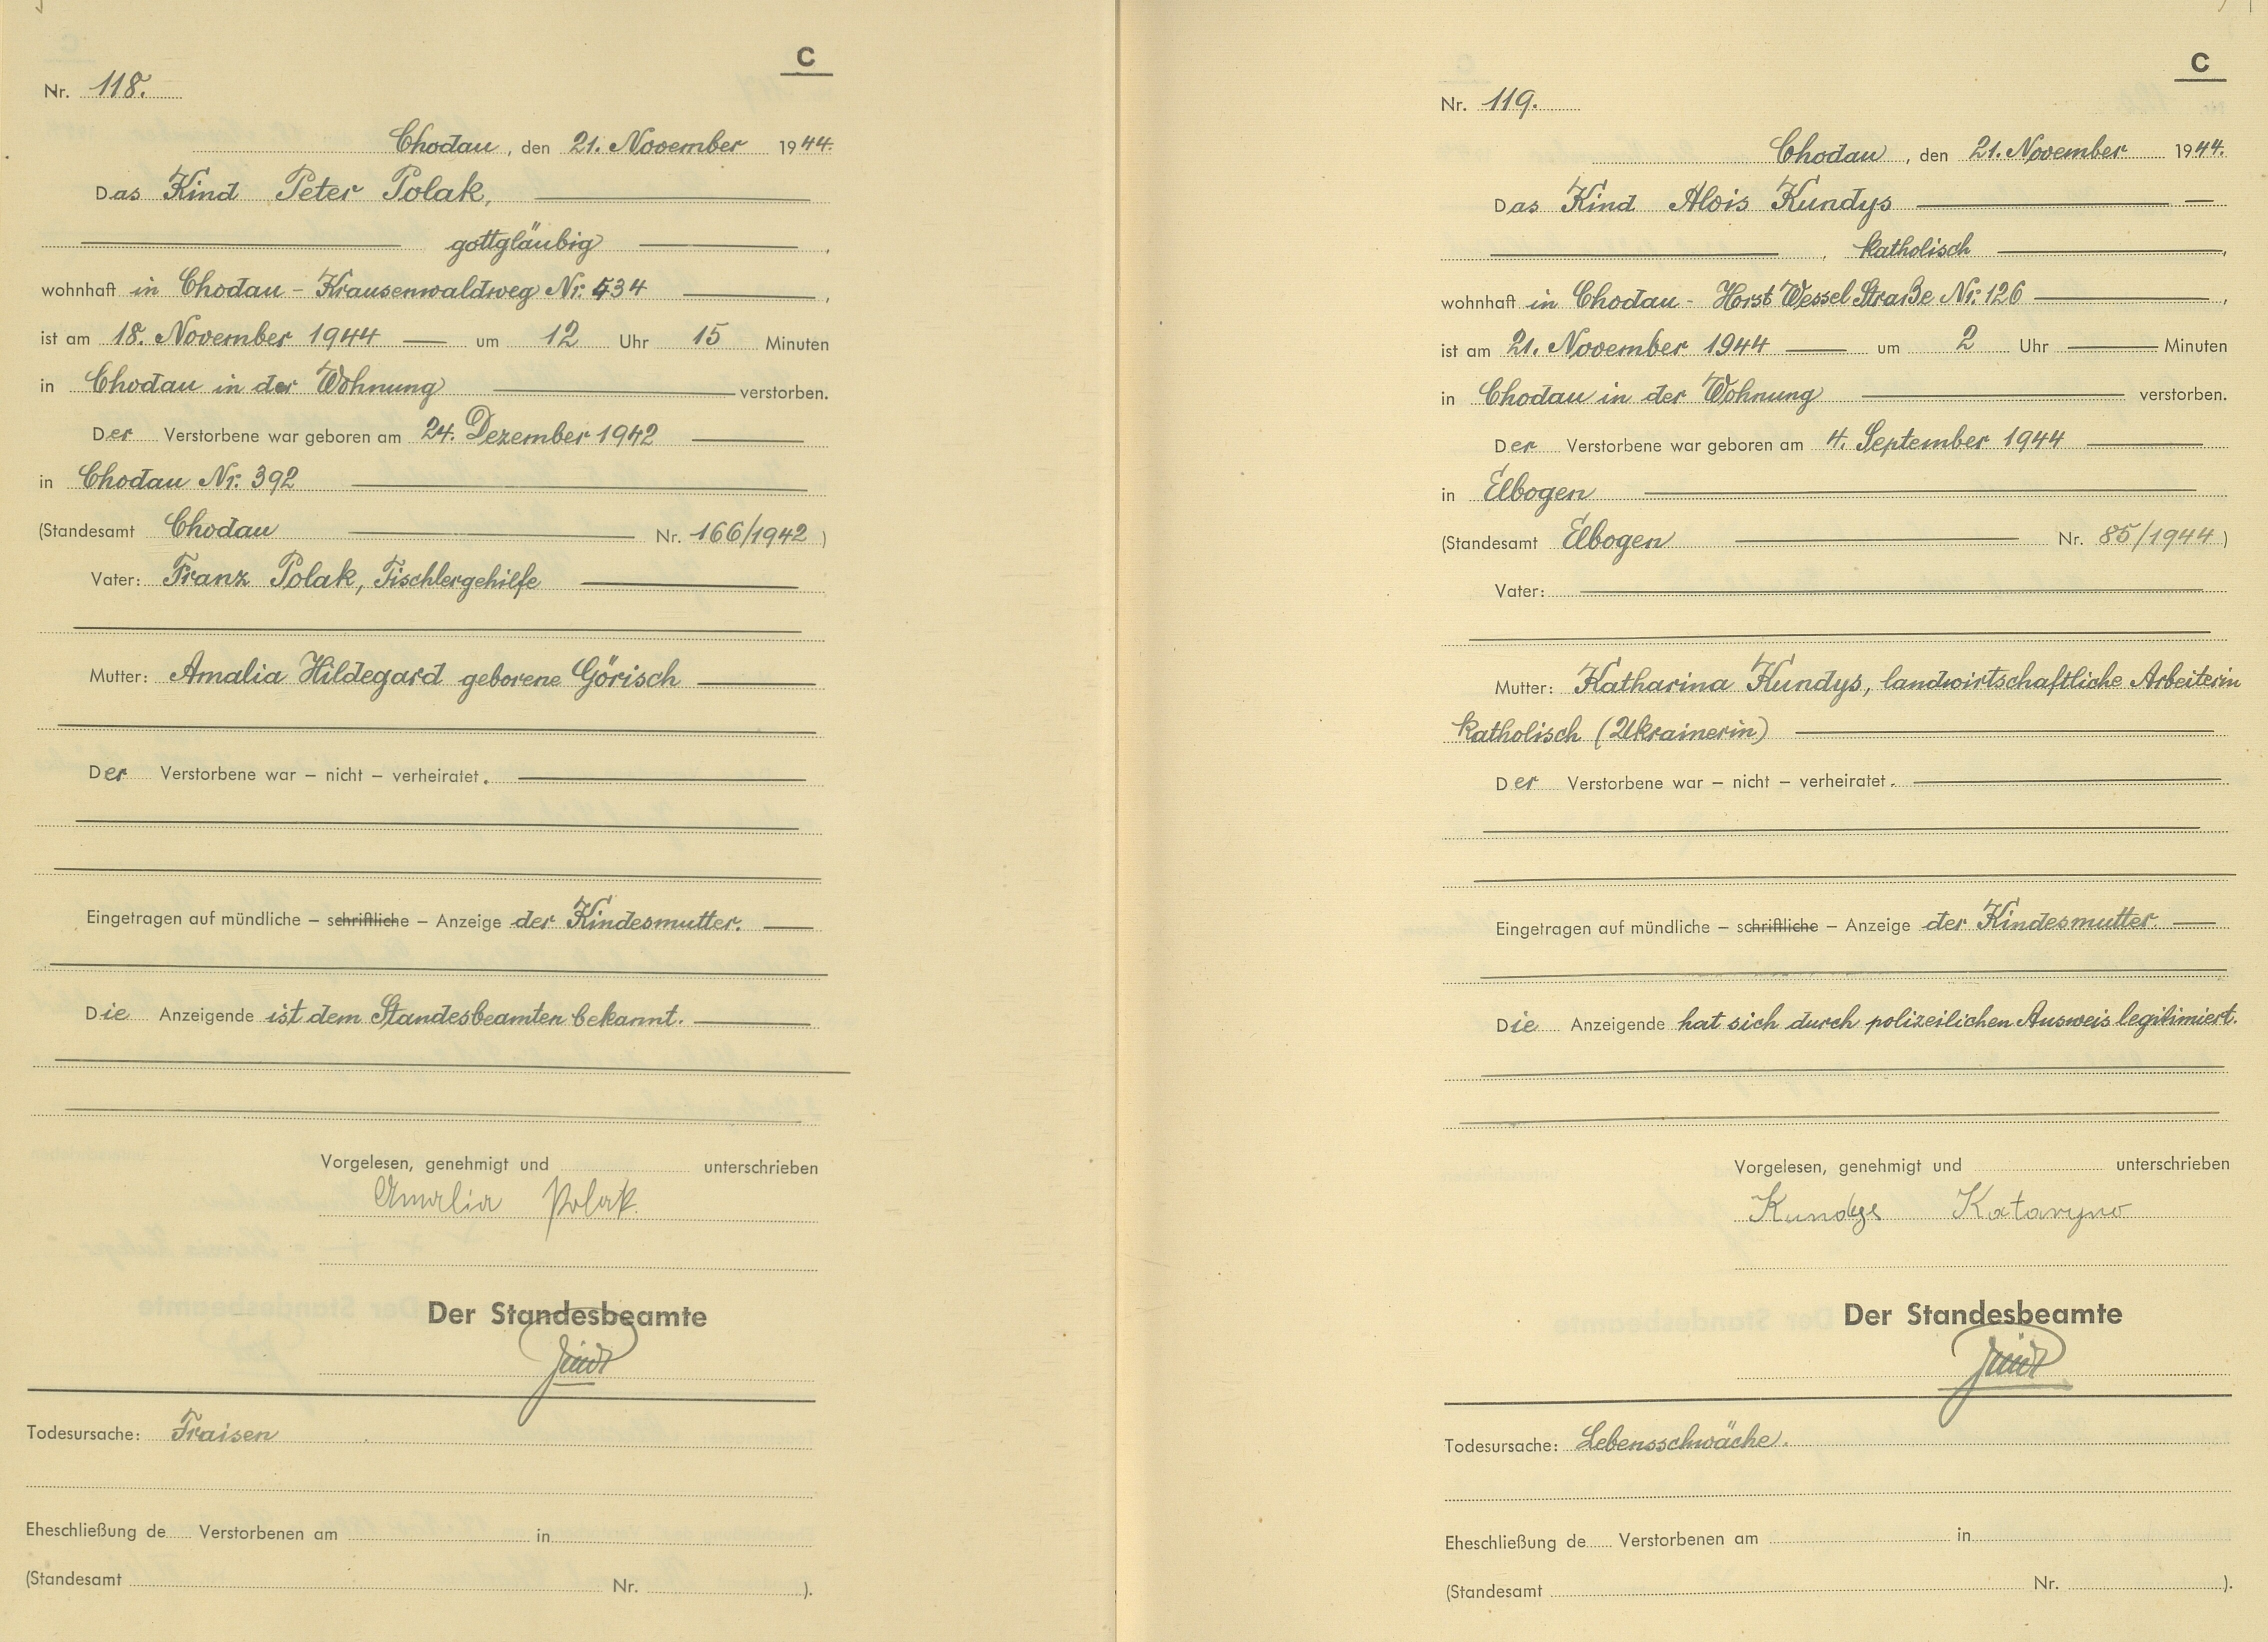 C
Nr. 118.
Chodau, den 21. November 1944.
Das Kind Peter Polak,
gottgläubig,
wohnhaft in Chodau - Krausenwaldweg Nr. 534,
ist am 18. November 1944 um 12 Uhr 15 Minuten
in Chodau in der Wohnung verstorben.
Der Verstorbene war geboren am 24. Dezember 1942
in Chodau Nr. 392
(Standesamt Chodau Nr. 166/1942)
Vater: Franz Polak, Tischlergehilfe
Mutter: Amalia Hildegard geborene Görisch
Der Verstorbene war – nicht – verheiratet.
Eingetragen auf mündliche – schriftliche – Anzeige der Kindesmutter.
Die Anzeigende ist dem Standesbeamten bekannt.
Vorgelesen, genehmigt und unterschrieben
Amalia Polak.
Der Standesbeamte
Todesursache: Fraisen
Eheschließung de Verstorbenen am in
(Standesamt Nr. ).
C
Nr. 119.
Chodau, den 21. November 1944.
Das Kind Alois Kundys
, katholisch,
wohnhaft in Chodau - Horst Wessel Straße Nr. 126,
ist am 21. November 1944 um 2 Uhr Minuten
in Chodau in der Wohnung verstorben.
Der Verstorbene war geboren am 4. September 1944
in Elbogen
(Standesamt Elbogen Nr. 85/1944)
Vater:
Mutter: Katharina Kundys, landwirtschaftliche Arbeiterin
katholisch (Ukrainerin)
Der Verstorbene war – nicht – verheiratet.
Eingetragen auf mündliche – schriftliche – Anzeige der Kindesmutter.
Die Anzeigende hat sich durch polizeilichen Ausweis legitimiert.
Vorgelesen, genehmigt und unterschrieben
Kundys Kataryno
Der Standesbeamte
Todesursache: Lebensschwäche.
Eheschließung de Verstorbenen am in
(Standesamt Nr. ).